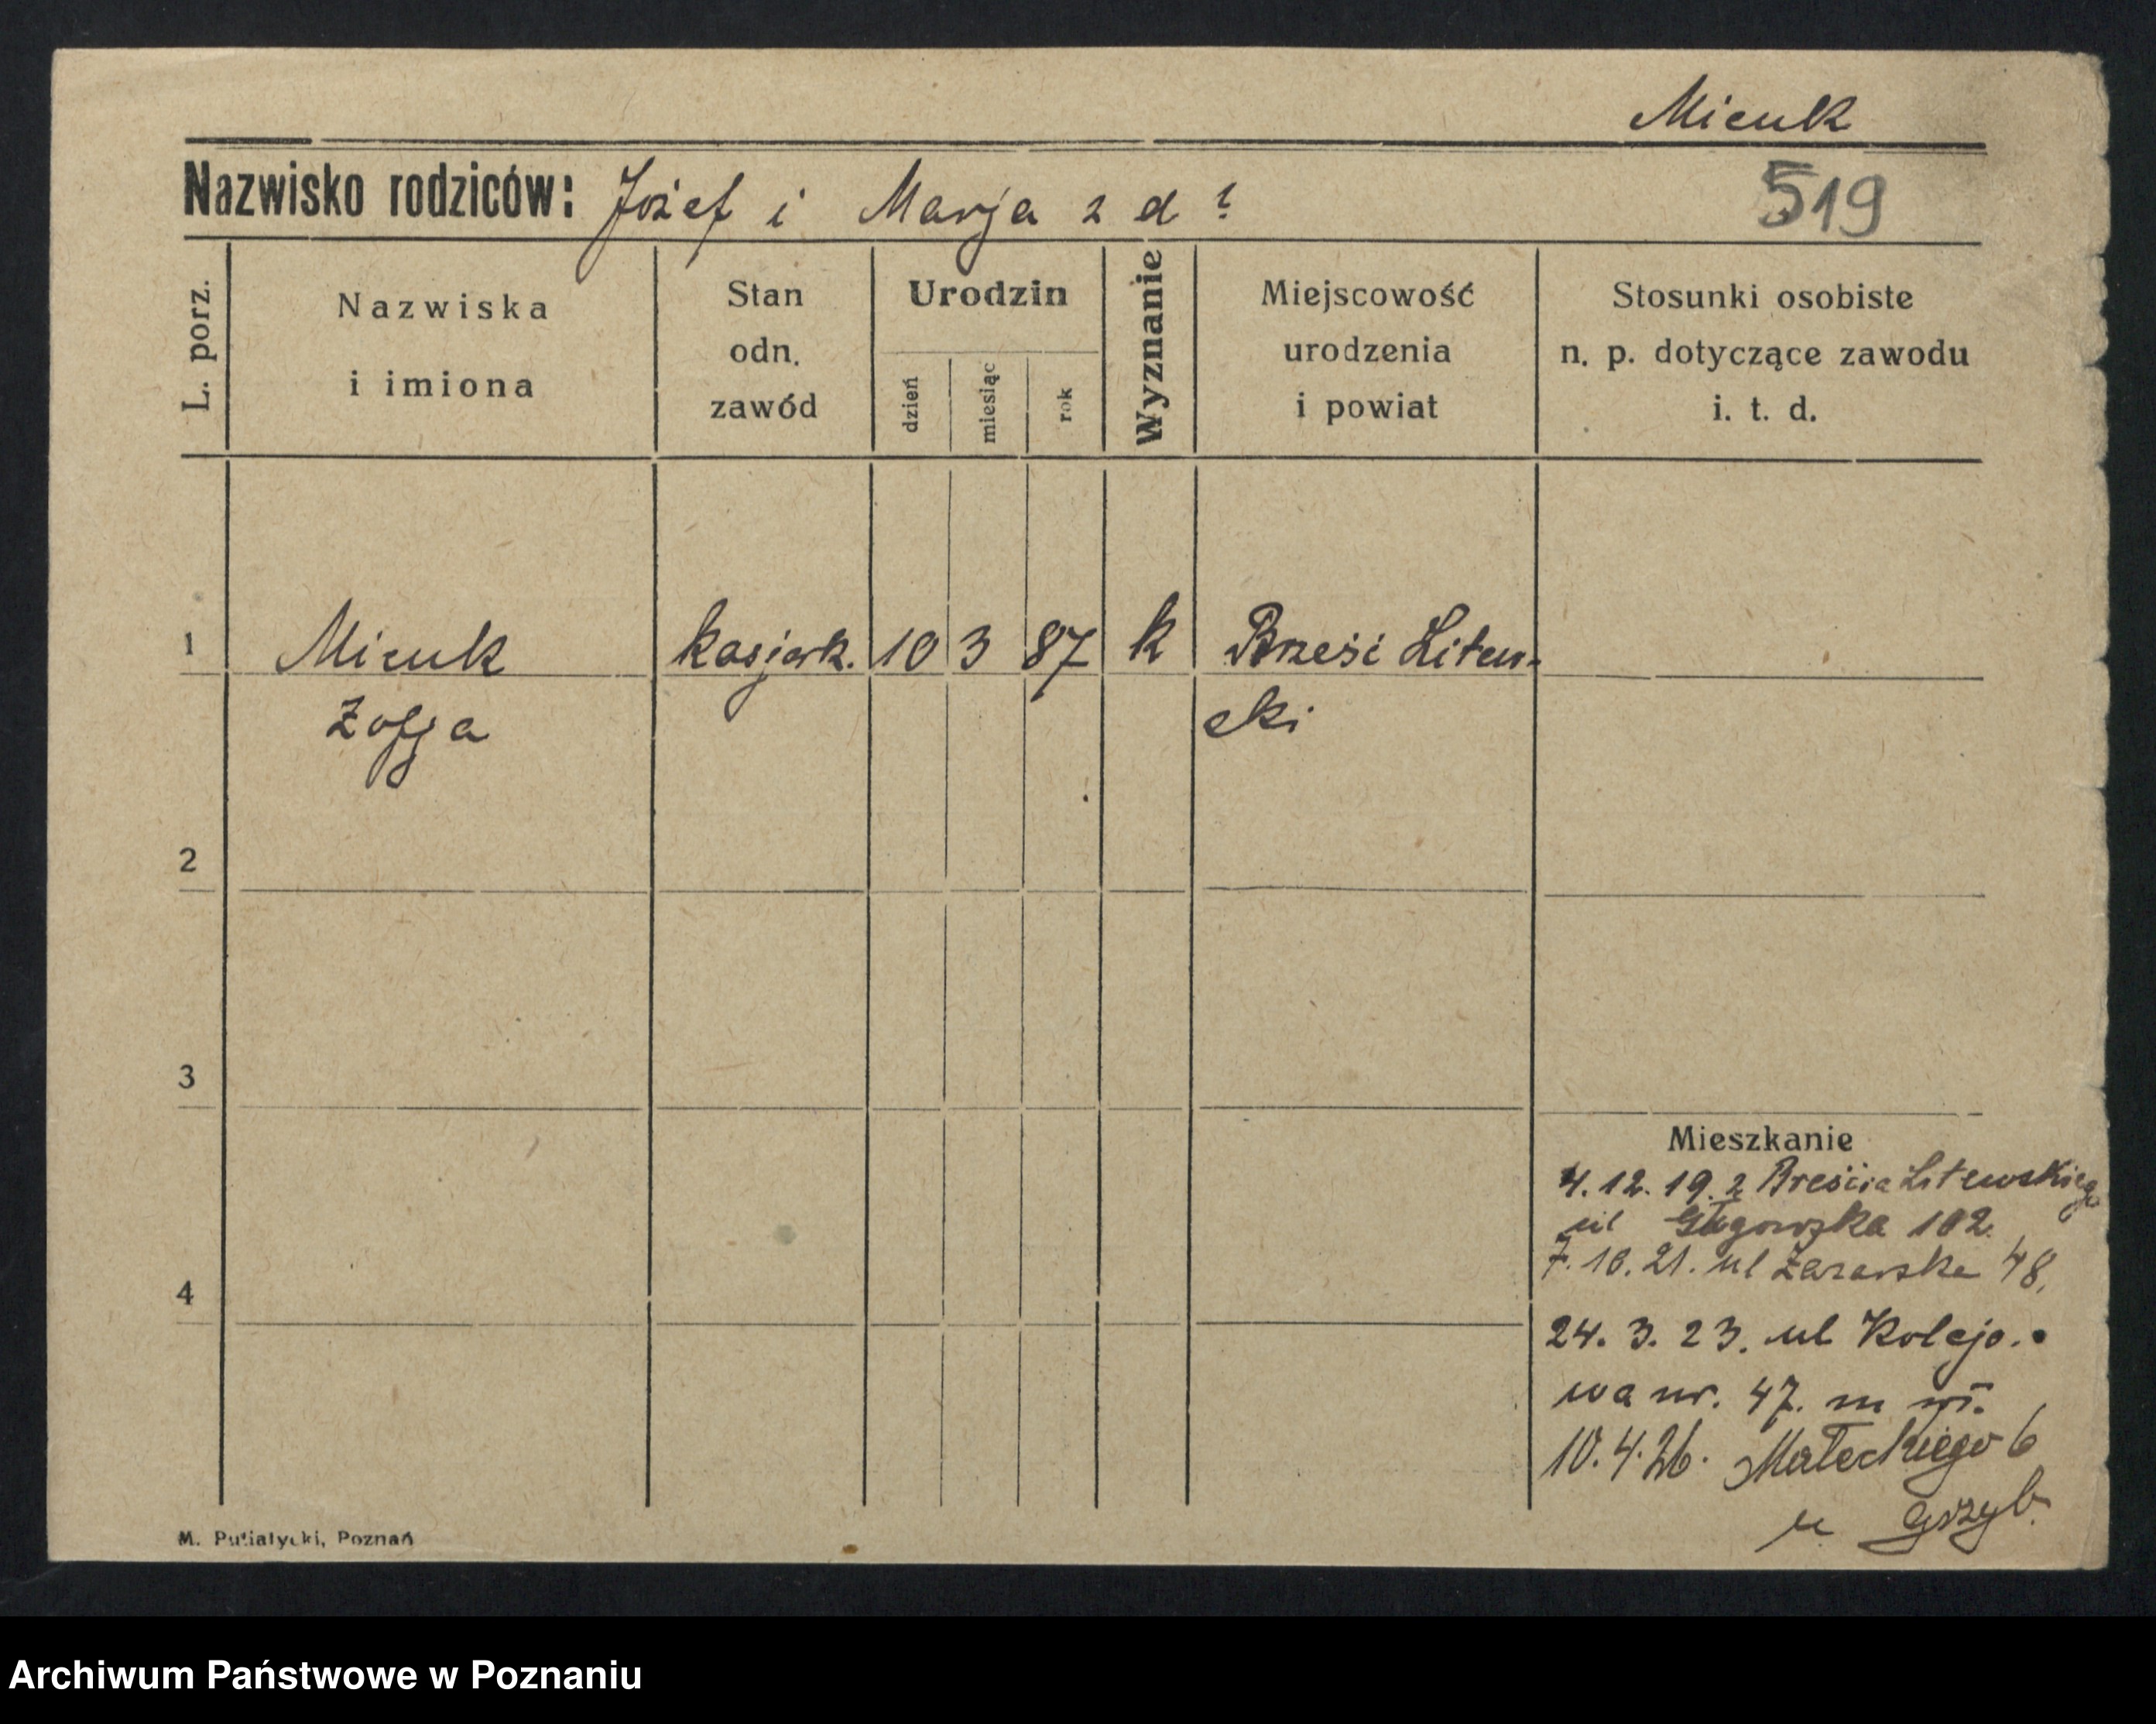 Micuk
Nazwisko rodziców: Józef i Marja z d ?
519
L. porz.
Nazwiska
i imiona
Stan
odn.
zawód
Urodzin
dzień
miesiąc
rok
Wyznanie
Miejscowość
urodzenia
i powiat
Stosunki osobiste
n. p. dotyczące zawodu
i. t. d.
1 Micuk kasjerk. 10 3 87 k Brześć Litew-
Zofja ski
2
3
4
Mieszkanie
4.12.19. z Brześcia Litewskiego
ul 102.
7.10.21. ul 48.
24. 3. 23. ul Kolejo.
wa nr. 47. m
10.4.26. Małeckiego 6
u Grzyb.
M. Putiatycki, Poznań
Archiwum Państwowe w Poznaniu